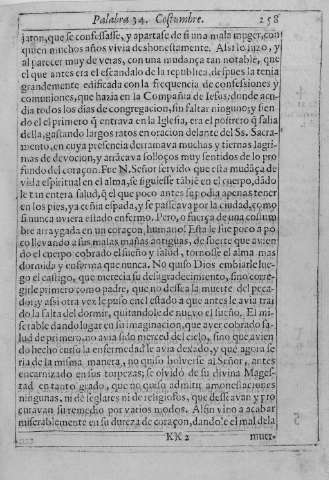 Palabra 34. Costumbre. 258
jaron, que se confessasse, y apartase de si una mala muger, con
quien muchos años vivia deshonestamente. Asi lo hizo, y
al parecer muy de veras, con una mudança tan notable, que
el que antes era el escandalo de la republica, despues la tenia
grandemente edificada con la frequencia de confessiones y
comuniones, que hazia en la Compañia de Iesus, donde acu-
dia todos los dias de congregacion, sin faltar ninguno; y sien-
do el el primero q̃ entrava en la Iglesia, era el postrero q̃ salia
della, gastando largos ratos en oracion delante del Ss. Sacra-
mento, en cuya presencia derramava muchas y tiernas lagri-
mas de devocion, y arrãcava solloços muy sentidos de lo pro
fundo del coraçon. Fue N. Señor servido que esta mudãça de
vida espiritual en el alma, se siguiesse tãbiẽ en el cuerpo, dãdo
le tan entera salud, q̃ el que poco antes se podia apenas tener
en los pies, ya ceñia espada, y se passeava por la ciudad, como
si nunca uviera estado enfermo. Pero, o fuerça de una costum
bre arraygada en un coraçon, humano! Esta le fue poco a po
co llevando a sus malas mañas antiguas, de suerte que avien
do el cuerpo cobrado el sueño y salud, tornosse el alma mas
dormida y enferma que nunca. No quiso Dios embiarle lue-
go el castigo, que merecia su desagradecimiento, sino corre-
girle primero como padre, que no dessea la muerte del peca-
dor; y assi otra vez le puso en el estado a que antes le avia trai
do la falta del dormir, quitandole de nuevo el sueño. El mi-
serable dando lugar en su imaginacion, que aver cobrado sa-
lud de primero, no avia sido merced del cielo, sino que avien
do hecho curso la enfermedad le avia dexado, y que agora se
ria de la misma manera, no quiso bolverse al Señor, antes
encarnizado en sus torpezas, se olvidó de su divina Mages-
tad en tanto grado, que no quiso admitir amonestaciones
ningunas, ni de seglares ni de religiosos, que desseavan y pro
curavan su remedio por varios modos. Al fin vino a acabar
miserablemente en su dureza de coraçon, dandole el mal de la
KK 2 muer-